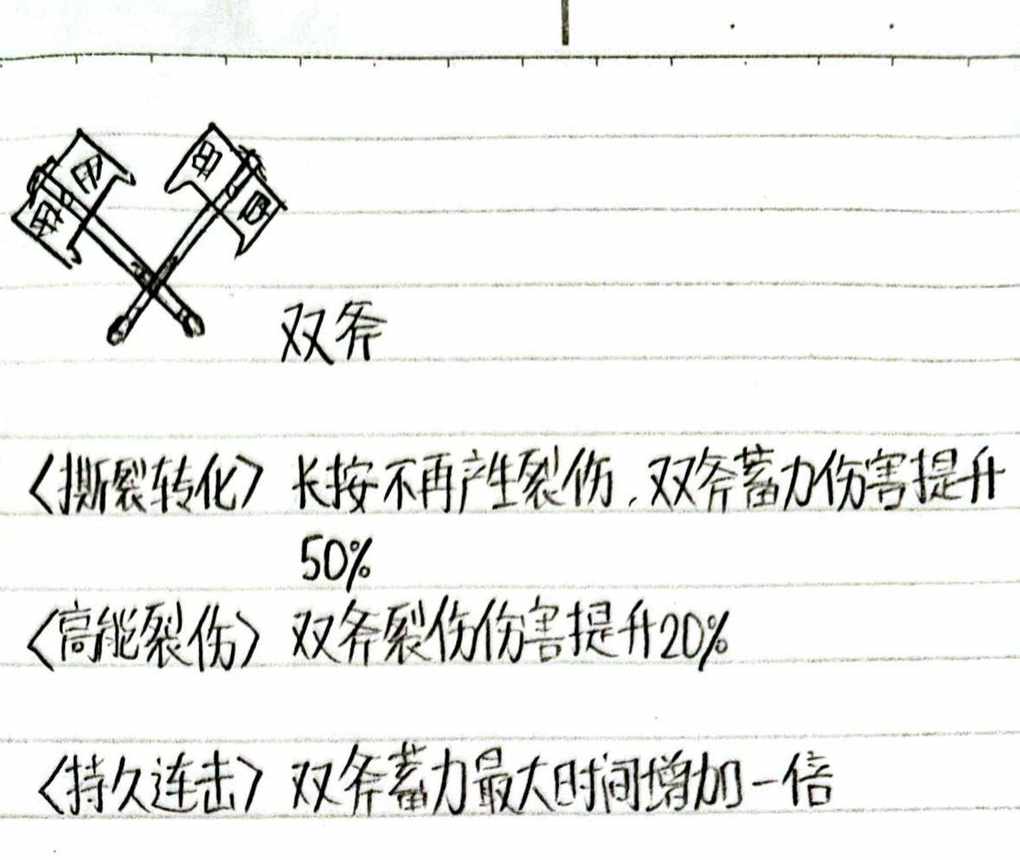 双斧
〈撕裂转化〉 长按不再产生裂伤,双斧蓄力伤害提升
50%
〈高能裂伤〉 双斧裂伤伤害提升20%
〈持久连击〉 双斧蓄力最大时间增加一倍